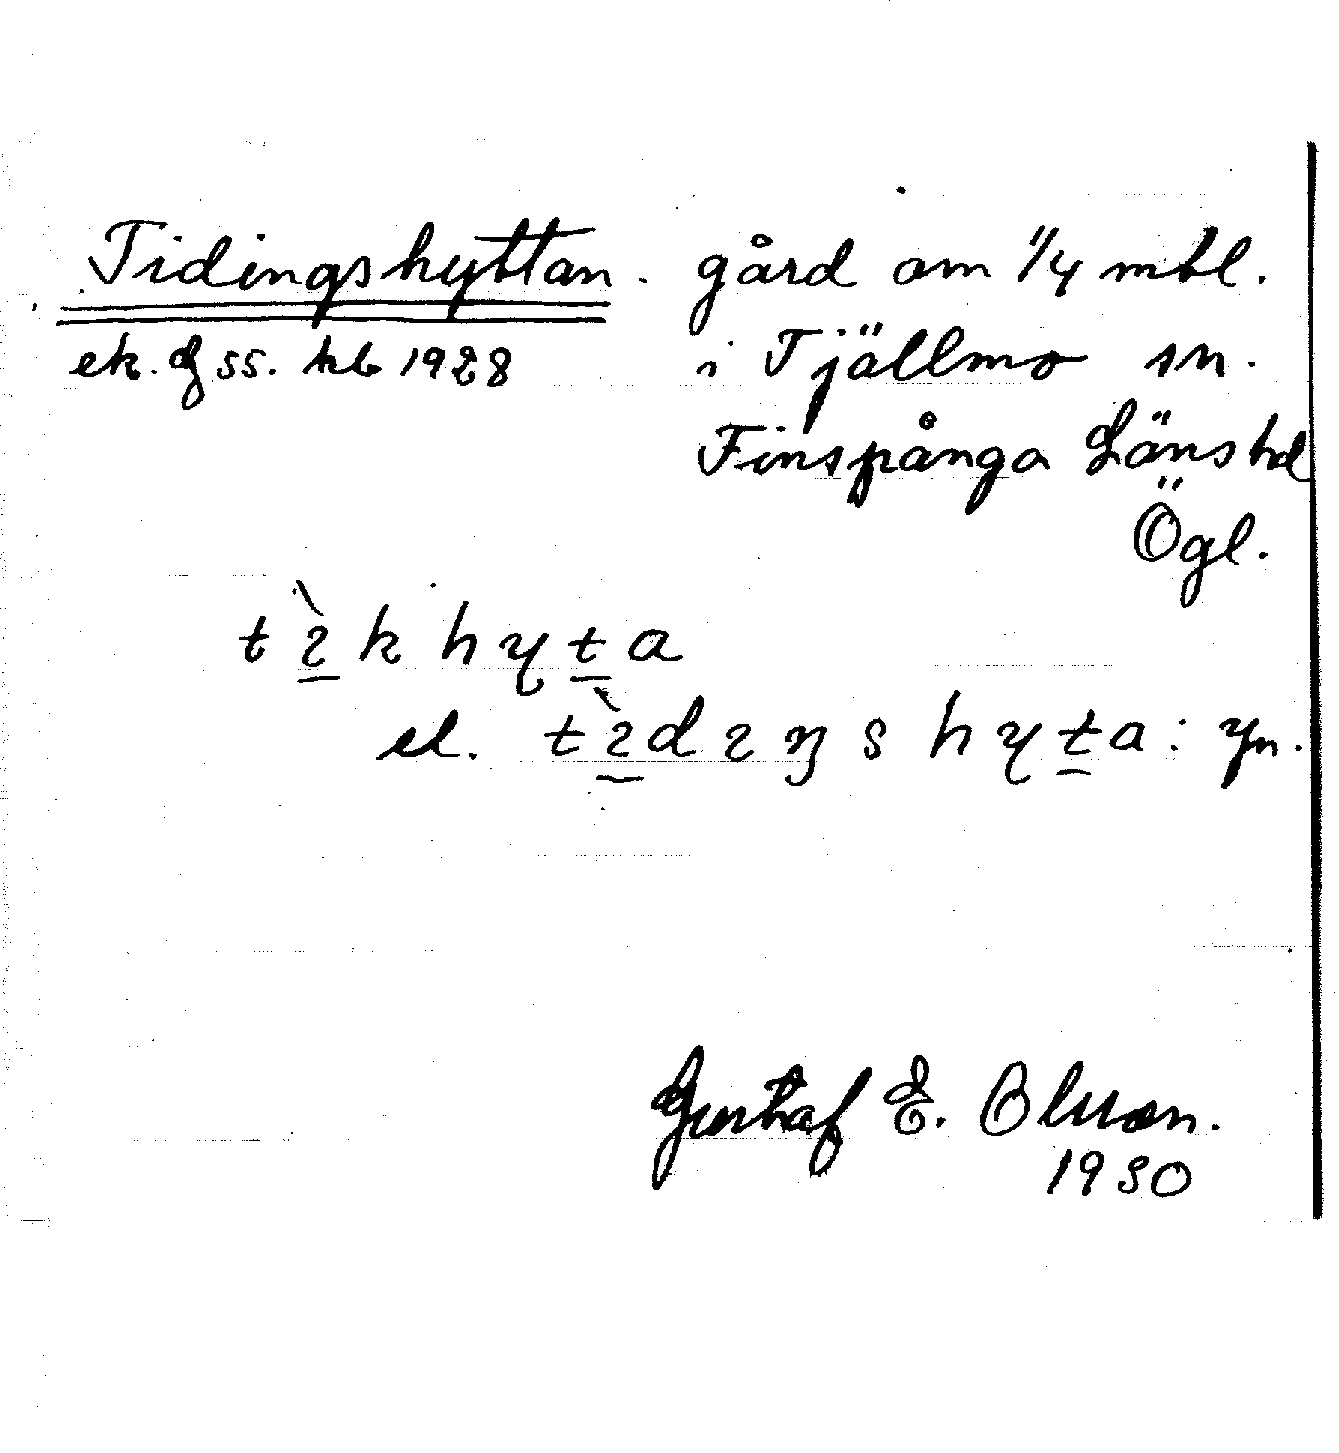 Tidingshyttan. gård om 1/4 mtl.
ek. 55. kb 1928 i Tjällmo sn.
Finspånga Läns hd
Ögl.
t ì k h y t a
el. t ì d ı ŋ s h y t a : yn.
Gustaf E. Olsson.
1930